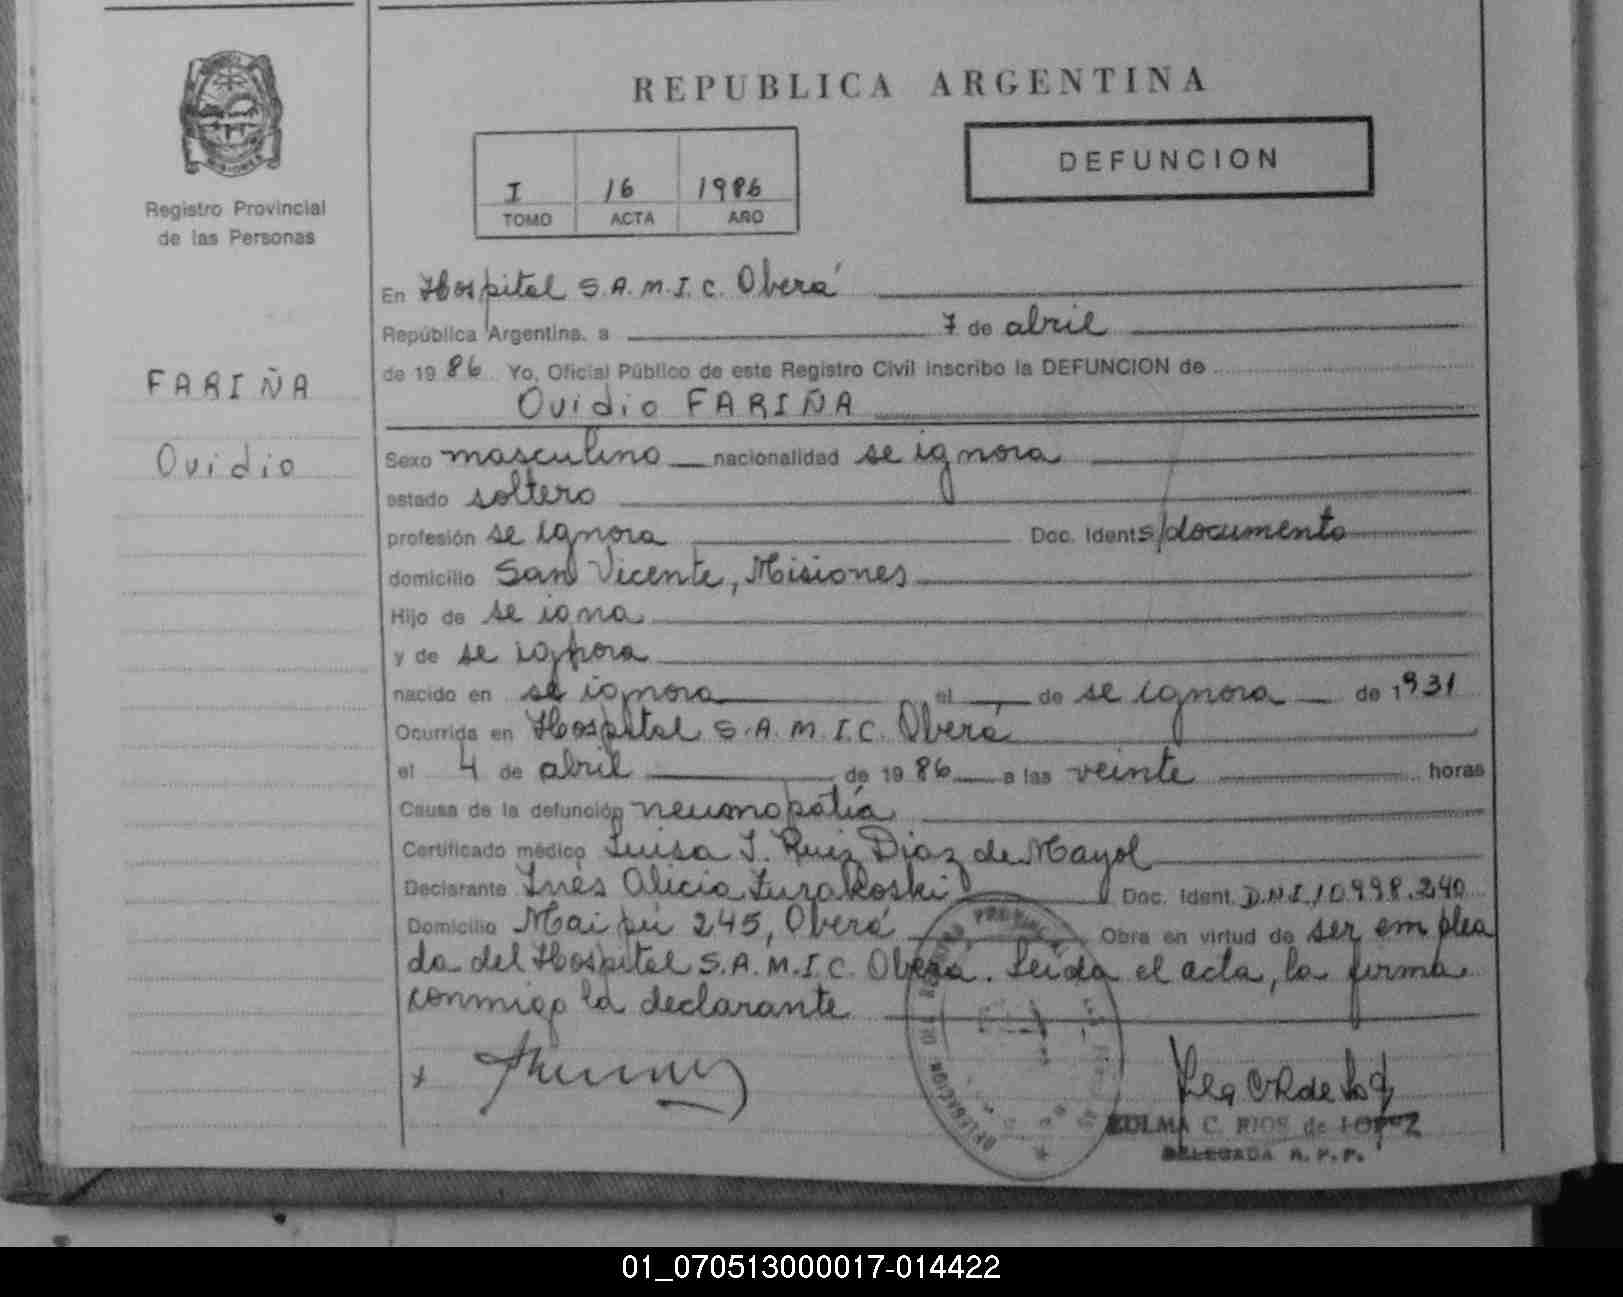 REPUBLICA ARGENTINA
DEFUNCION
I 16 1986
TOMO ACTA AÑO
MISIONES
Registro Provincial
de las Personas
FARIÑA
Ovidio
En Hospital S.A.M.I.C. Oberá
República Argentina, a 7 de abril
de 1986 Yo, Oficial Público de este Registro Civil inscribo la DEFUNCION de
Ovidio FARIÑA
Sexo masculino nacionalidad se ignora
estado soltero
profesión se ignora Doc. Ident. s/documento
domicilio San Vicente, Misiones
Hijo de se igna
y de se ignora
nacido en se ignora el de se ignora de 1931
Ocurrida en Hospital S.A.M.I.C. Oberá
el 4 de abril de 1986 a las veinte horas
Causa de la defunción neumopatía
Certificado médico Luisa J. Ruiz Diaz de Mayol
Declarante Inés Alicia Zurakoski Doc. Ident. D.N.I. 10.998.240
Domicilio Maipú 245, Oberá Obra en virtud de ser emplea
da del Hospital S.A.M.I.C. Oberá. Leída el acta, la firma
conmigo la declarante
ZULMA C. RIOS de LOPEZ
DELEGADA R.P.P.
DELEGACION
01_070513000017-014422